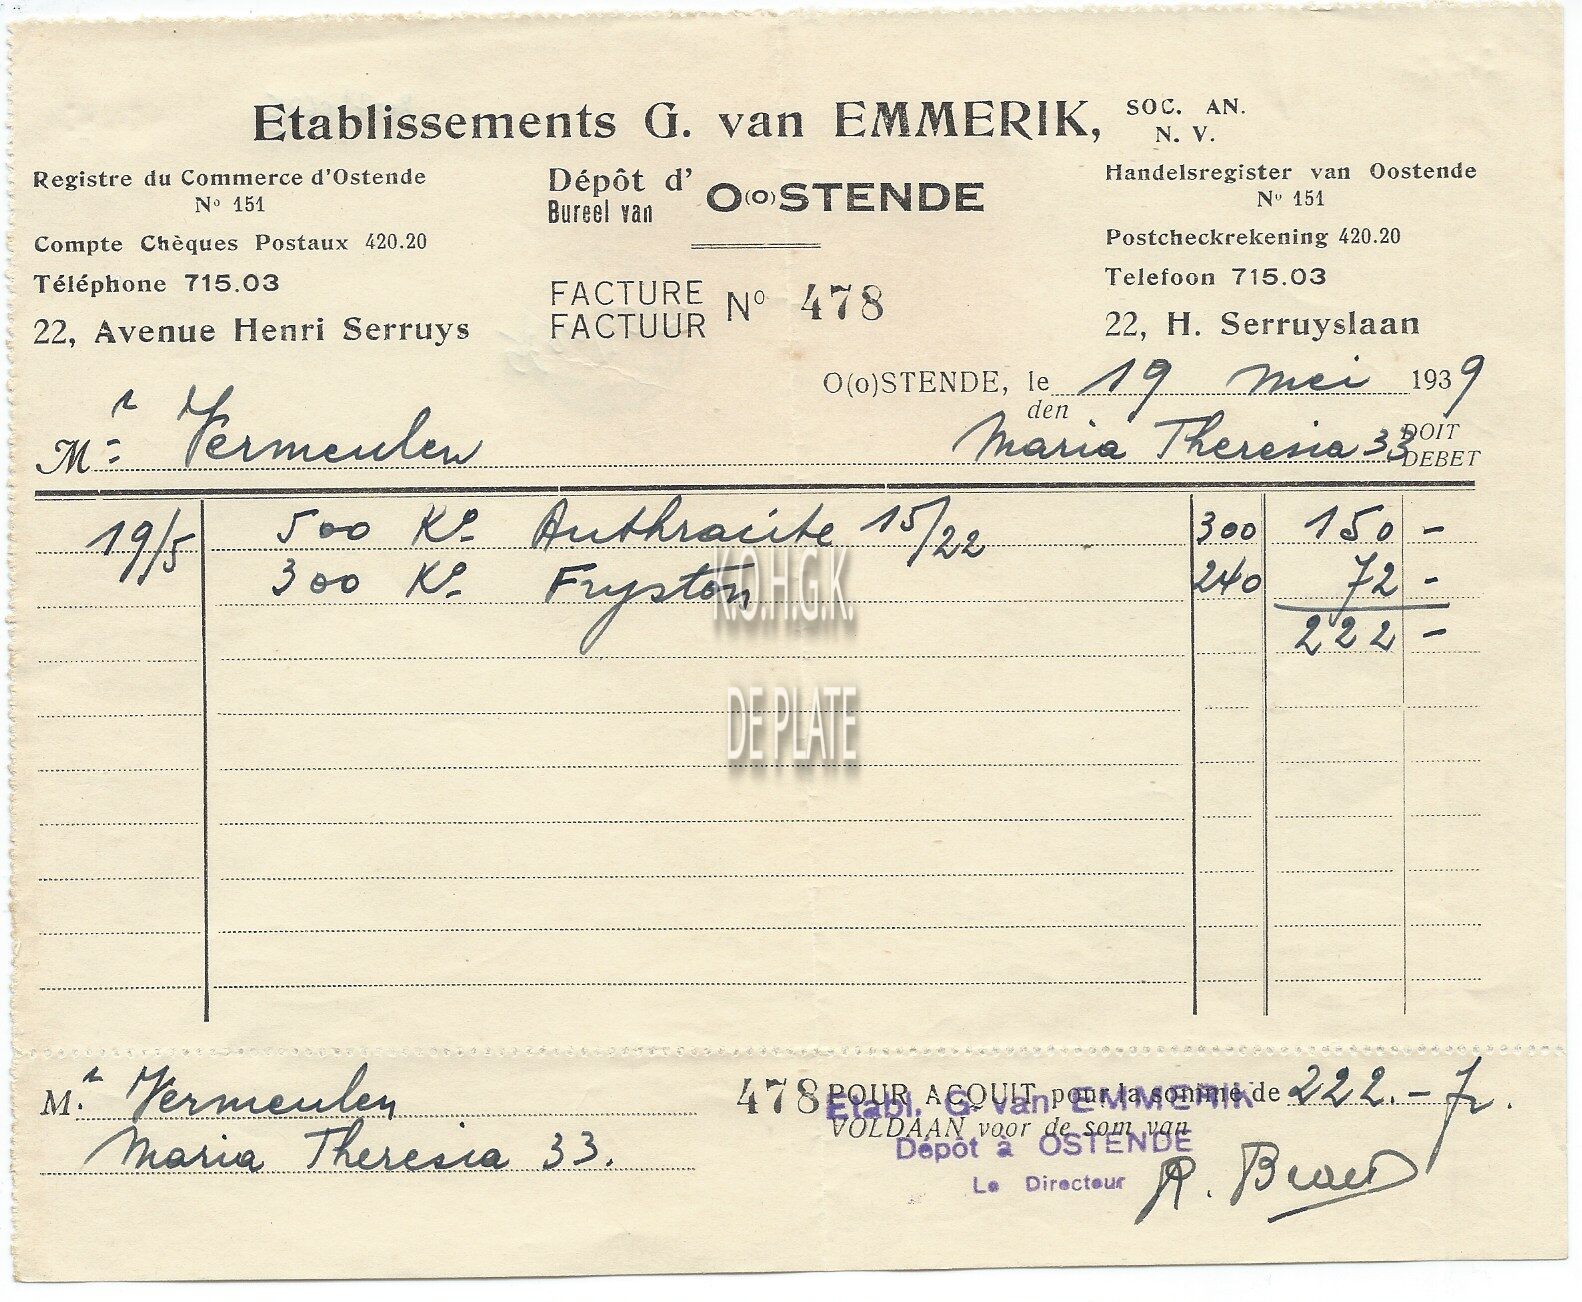 Etablissements G. van EMMERIK, SOC. AN.
N. V.
Registre du Commerce d'Ostende
Nº 151
Compte Chèques Postaux 420.20
Téléphone 715.03
22, Avenue Henri Serruys
Dépôt d'
Bureel van
O(O)STENDE
FACTURE
FACTUUR
Nº 478
Handelsregister van Oostende
Nº 151
Postcheckrekening 420.20
Telefoon 715.03
22, H. Serruyslaan
O(o)STENDE, le 19 mei 1939
den
Mr Vermeulen Maria Theresia 33 DOIT
DEBET
19/5 500 Ko Anthracite 15/22 300 150 -
300 Ko Fryston 240 72 -
222 -
K.O.H.G.K.
DE PLATE
M.r Vermeulen
Maria Theresia 33.
478 POUR ACQUIT pour la somme de 222.- fr.
VOLDAAN voor de som van
Etabl. G. van EMMERIK
Dépôt à OSTENDE
Le Directeur
R.